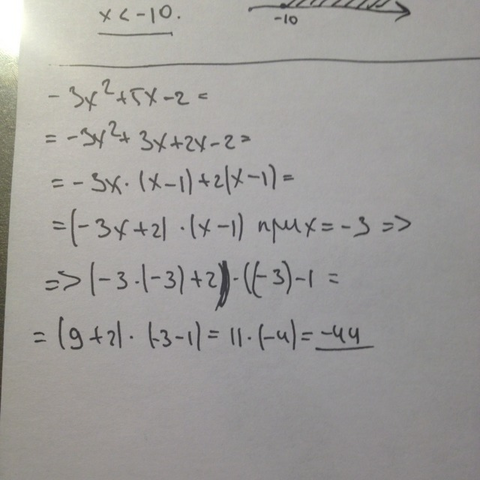 x < -10.
-10
- 3x² + 5x - 2 =
= -3x² + 3x + 2x - 2 =
= -3x · (x - 1) + 2(x - 1) =
= (-3x + 2) · (x - 1) при x = -3 =>
=> (-3 · (-3) + 2) · ((-3) - 1 =
= (9 + 2) · (-3 - 1) = 11 · (-4) = -44